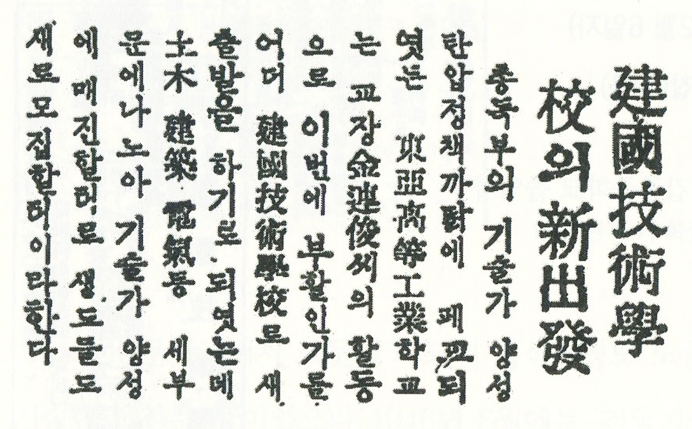 建國技術學
校의 新出發
총독부의 기술가 양성
탄압정책까닭에 폐교되
엿든 東亞高等工業학교
는 교장金連俊씨의 활동
으로 이번에 부활인가를
어더 建國技術學校로 새
출발을 하기로 되엿는데
土木 建築 電氣등 세부
문에나노아 기술가 양성
에 매진할터로 생도들도
새로모집할터이라한다